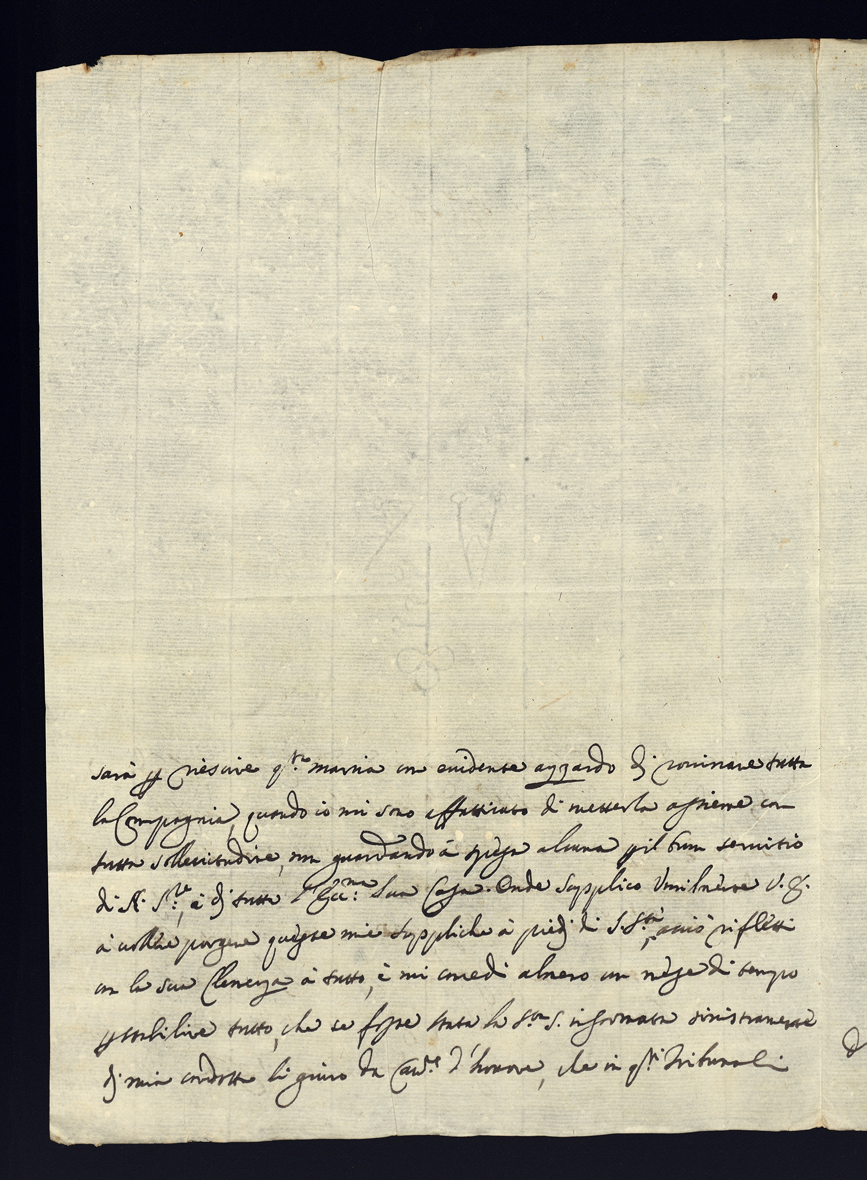 sarà p riescire q.ta marcia con evidente azzardo di rovinare tutta
la Compagnia, quando io mi sono affatticato di metterla assieme con
tutta sollecitudine, non guardando à spesa alcuna p il bun servitio
di N. S.re, è di tutta l'Ecc.ma Sua Casa. Onde supplico Umilmente V. E.
à voller porgere queste mie suppliche à piedi di S. S.tà, acciò rifletti
con la sua Clemenza à tutto, è mi concedi almeno un mese di tempo
p stabilire tutto, che se fosse stata la S.tà S. informata sinistramente
di mia condotta li giuro da Cav.re d'honore, che in q.sti Tribunali